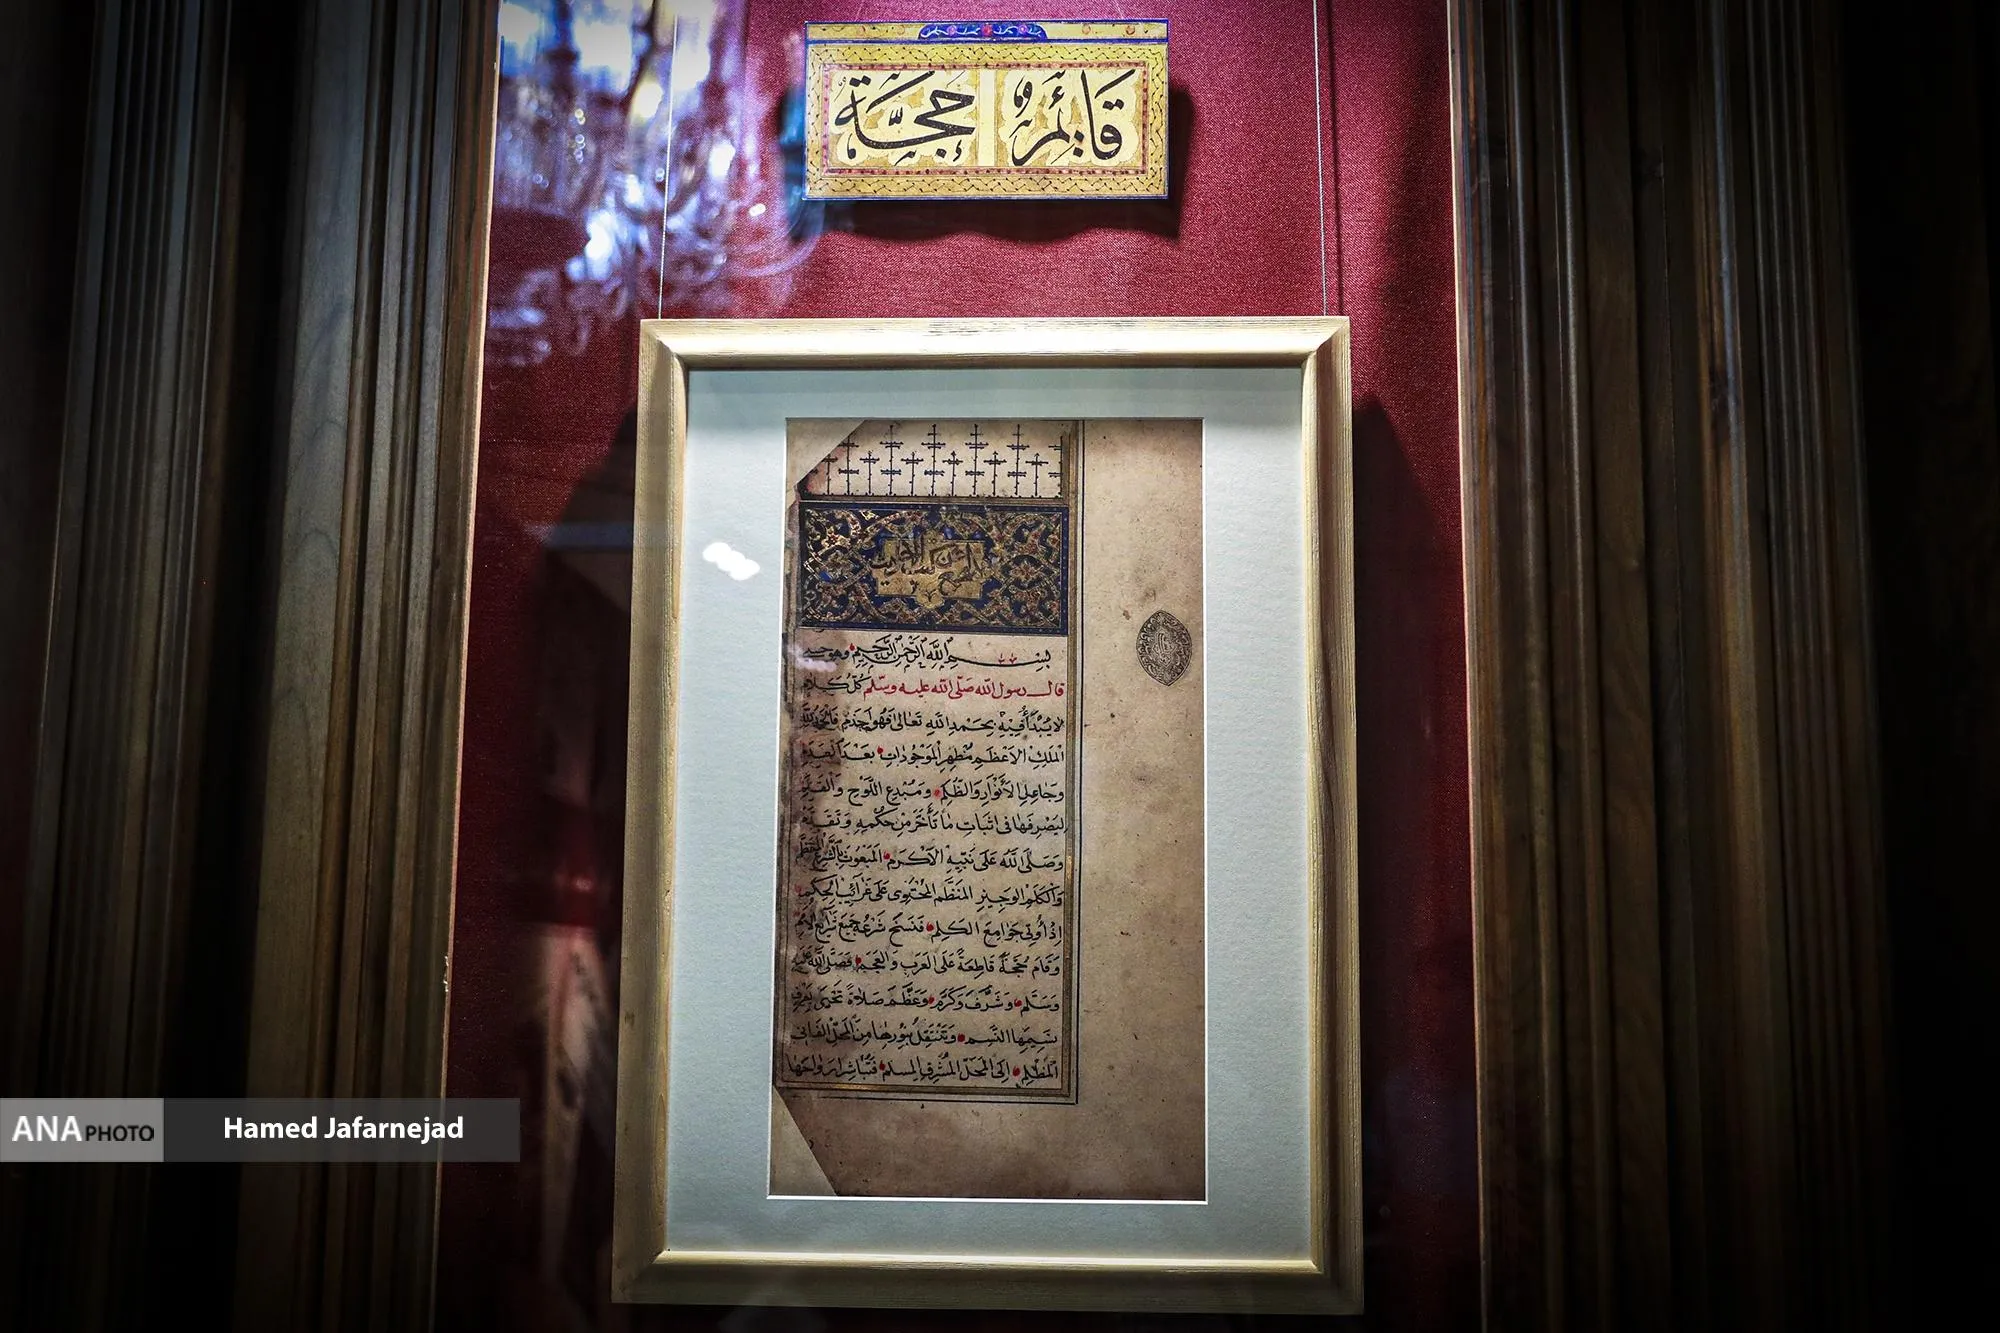 قَائِمٌ حُجَّة
بِسْمِ اللَّهِ الرَّحْمٰنِ الرَّحِيمِ وهو حسبي
قال رسول الله صلّى الله عليه وسلّم كُلُّ كَلَامٍ
لا يُبْدَأُ فِيْهِ بِحَمْدِ اللَّهِ تَعَالىٰ فَهُوَ اَجْذَمُ فَالْحَمْدُ لِلَّهِ
الْمَلِكِ الْاَعْظَمِ مُظْهِرِ الْمَوْجُودَاتِ بَعْدَ الْعَدَمِ
وَجَاعِلِ الْاَنْوَارِ وَالظُّلَمِ وَمُبْدِعِ اللَّوْحِ وَالْقَلَمِ
لِيَصْرِفَهَا فى اثبَاتِ مَا تَأَخَّرَ مِنْ حُكْمِهِ وَتَقَدَّمَ
وَصَلَّى اللَّهُ عَلَى نَبِيِّهِ الْاَكْرَمِ الْمَبْعُوثِ بِالشَّرْعِ الْمُعَظَّمِ
وَالْكَلَمِ الْوَجِيْزِ الْمُنَظَّمِ الْمُحْتَوِى عَلَى غَرَائِبِ الْحِكَمِ
اِذْ اُوتِىَ جَوَامِعَ الْكَلِمِ فَنَسَخَ شَرْعُهُ جَمِيْعَ شَرَائِعِ الْاُمَمِ
وَقَامَ حُجَّةً قَاطِعَةً عَلَى الْعَرَبِ وَالْعَجَمِ فَصَلَّى اللَّهُ عَلَيْهِ
وَسَلَّم وَشَرَّفَ وَكَرَّمَ وَعَظَّمَ صَلَاةً تَحْيَى بِعَرْفِ
نَسِيْمِهَا النَّسَمُ وَتَنْتَقِلُ بِنُورِهَا مِنَ الْمَحَلِّ الْفَانِى
الْمُظْلِمِ اِلَى الْمَحَلِّ الْمُشْرِقِ الْمسلم
ANA PHOTO
Hamed Jafarnejad